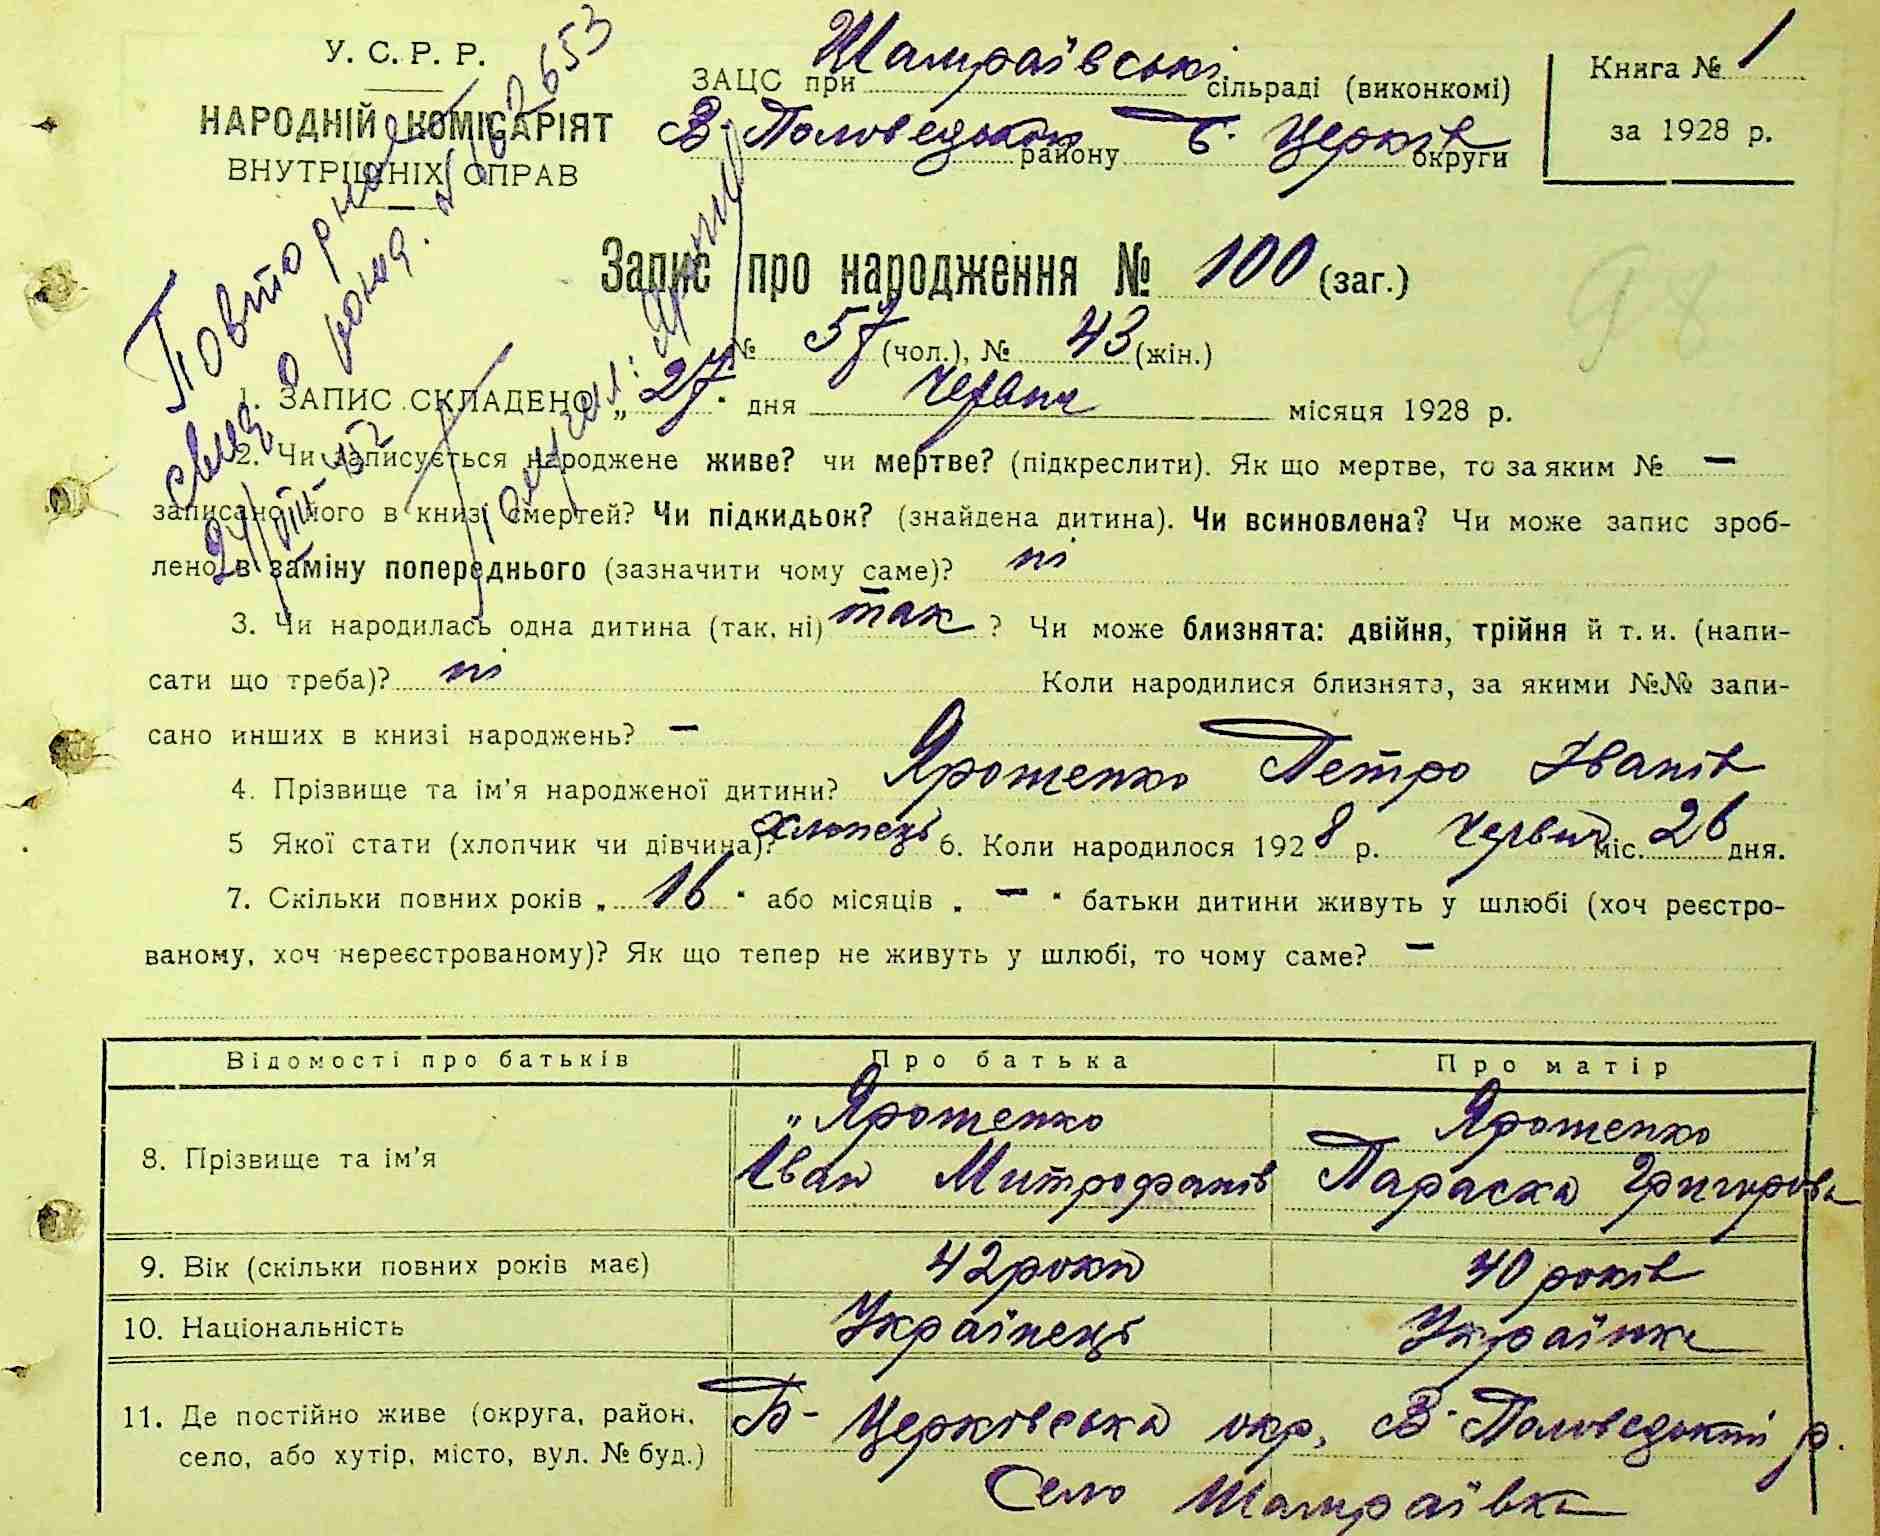 У. С. Р. Р.
НАРОДНІЙ КОМІСАРІЯТ
ВНУТРІШНІХ СПРАВ
ЗАЦС при Шамраївські сільраді (виконкомі)
В-Половецьком району Б. Церків округи
Книга № 1
за 1928 р.
Повторное
свид. о рожд. № 162653
24/VIII-52
Запис про народження № 100 (заг.)
№ 57 (чол.), № 43 (жін.)
1. ЗАПИС СКЛАДЕНО „ 27 " дня червня місяця 1928 р.
2. Чи записується народжене живе? чи мертве? (підкреслити). Як що мертве, то за яким № —
записано його в книзі смертей? Чи підкидьок? (знайдена дитина). Чи всиновлена? Чи може запис зроб-
лено в заміну попереднього (зазначити чому саме)? ні
3. Чи народилась одна дитина (так, ні) так ? Чи може близнята: двійня, трійня й т. и. (напи-
сати що треба)? ні Коли народилися близнята, за якими №№ запи-
сано инших в книзі народжень? —
4. Прізвище та ім'я народженої дитини? Ярошенко Петро Іванів
5 Якої стати (хлопчик чи дівчина)? хлопець 6. Коли народилося 1928 р. червня міс. 26 дня.
7. Скільки повних років „ 16 " або місяців „ — " батьки дитини живуть у шлюбі (хоч реєстро-
ваному, хоч нереєстрованому)? Як що тепер не живуть у шлюбі, то чому саме? —
Відомості про батьків Про батька Про матір
8. Прізвище та ім'я „Ярошенко Іван Митрофанів Ярошенко Параска Григорова
9. Вік (скільки повних років має) 42 роки 40 років
10. Національність Українець Українка
11. Де постійно живе (округа, район, Б-Церківська окр, В-Половецький р.
село, або хутір, місто, вул. № буд.) Село Шамраївка